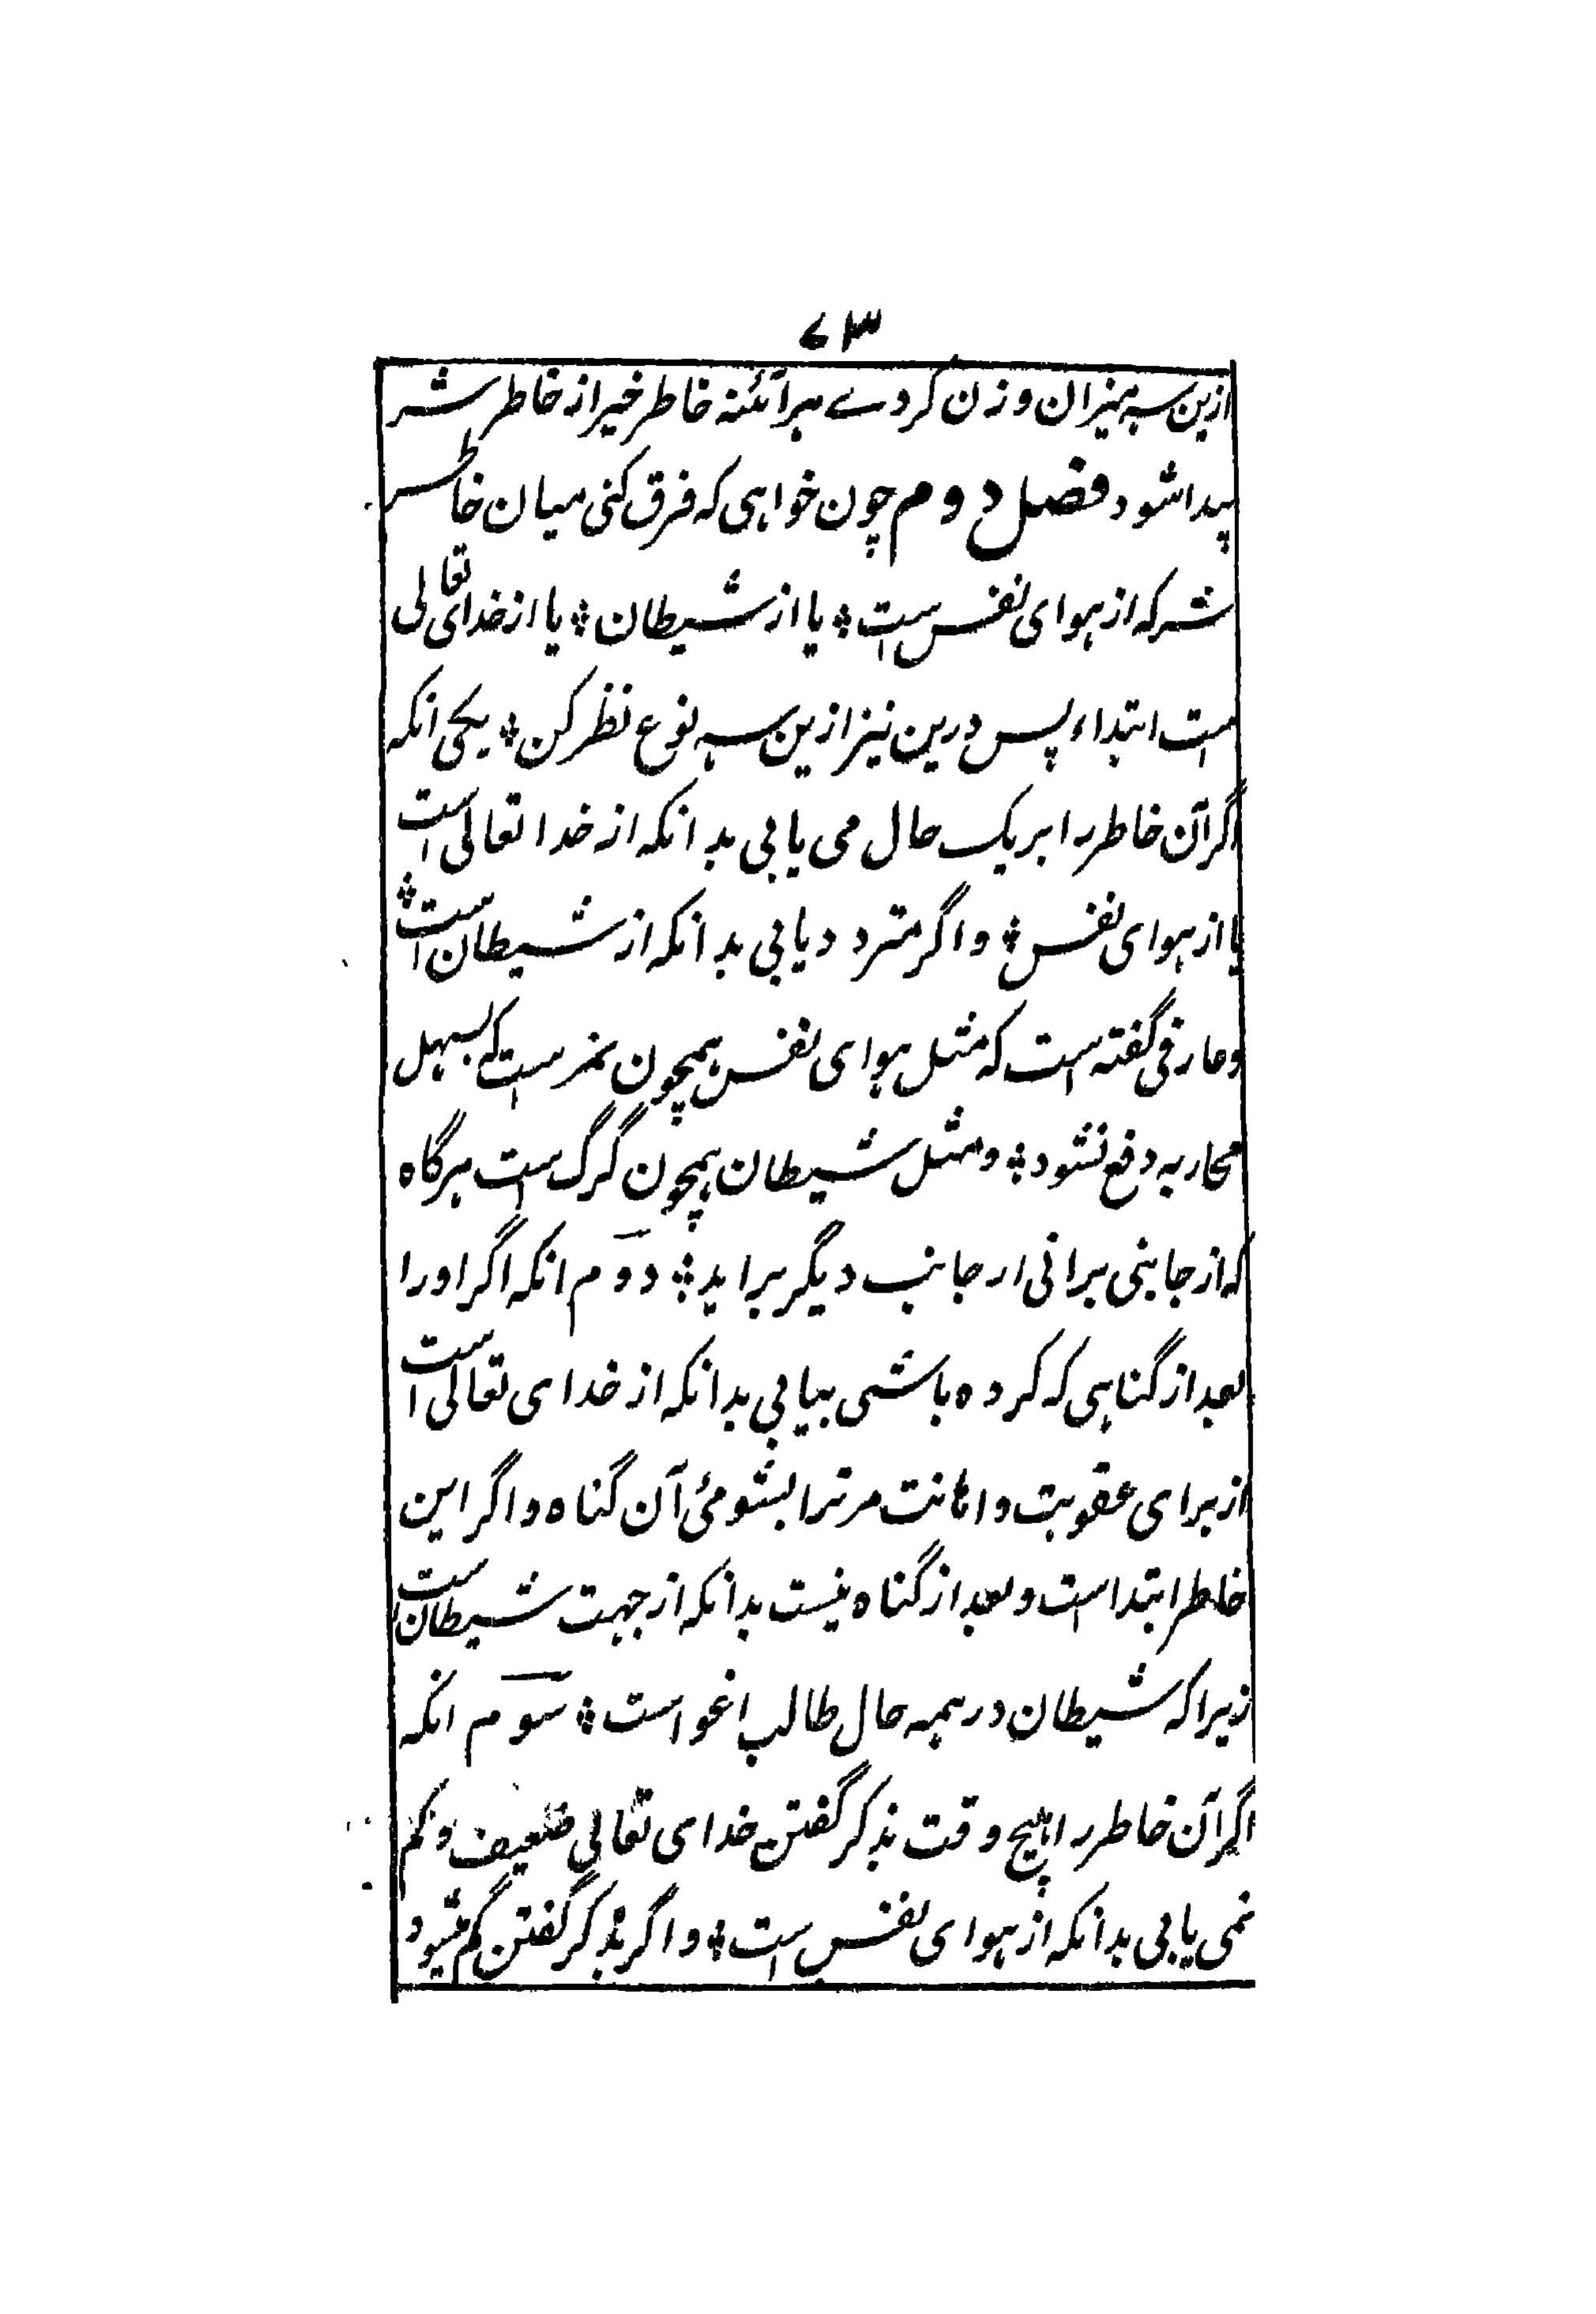 ۷۳
ازین سه میزان وزن کردے هرآئنه خاطر خیر از خاطر شر
پیدا شود فصل دوم چون خواهی که فرق کنی میان خاطر
شر که از هوای نفس است ؛ یا از شیطان ؛ یا از خدای تعالی
است ابتداء پس درین نیز ازین سه نوع نظر کن ؛ یکی انکه
اگر آن خاطر را بر یک حال می یابی بدانکه از خدا تعالی است
یا از هوای نفس ؛ و اگر متردد یابی بدانکه از شیطان است ؛
و عارفی گفته است که مثل هوای نفس همچون نمر است که بسهل
محاربه دفع نشود ؛ و مثل شیطان همچون گرگ است هرگاه
که از جانبی برانی از جانب دیگر براید ؛ دوم انکه اگر او را
بعد از گناهی که کرده باشی بیابی بدانکه از خدای تعالی است
از برای عقوبت و اهانت مر ترا بشومئ آن گناه و اگر این
خاطر ابتدا است و بعد از گناه نیست بدانکه از جهت شیطان است
زیرا که شیطان در همه حال طالب اغوا است ؛ سوم انکه
اگر آن خاطر را هیچ وقت بذکر گفتن خدای تعالی ضعیف و کم
نمی یابی بدانکه از هوای نفس است ؛ و اگر بذکر گفتن کم میشود